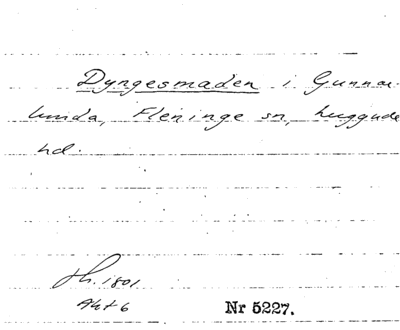 Dyngesmaden i Gunnar
lunda, Fleninge sn, Luggude
hd.
1801
Nr 5227.